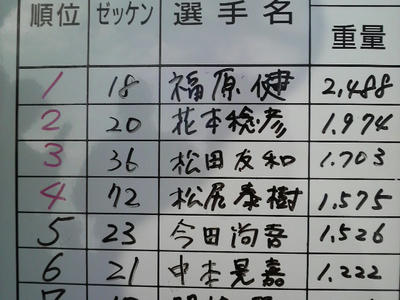 順位 ゼッケン 選手名 重量
1 18 福原健 2,488
2 20 花本稔彦 1,974
3 36 松田友和 1,703
4 72 松尾泰樹 1,575
5 23 今田尚吾 1,526
6 21 中本晃嘉 1,222